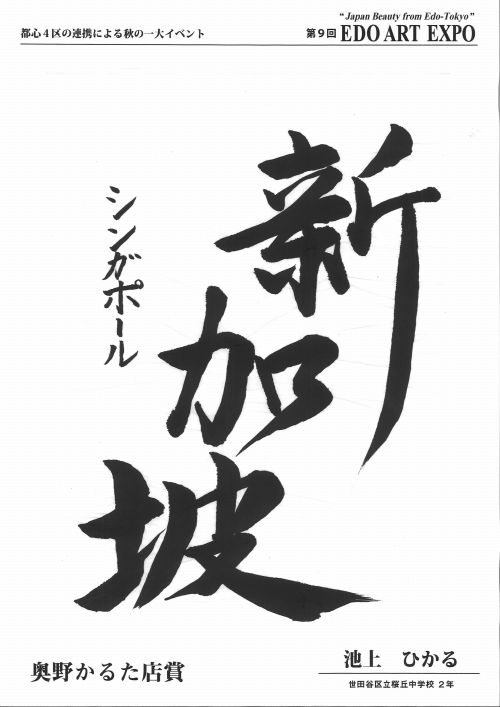 都心４区の連携による秋の一大イベント
"Japan Beauty from Edo-Tokyo"
第９回 EDO ART EXPO
新加坡
シンガポール
奥野かるた店賞
池上　ひかる
世田谷区立桜丘中学校 ２年